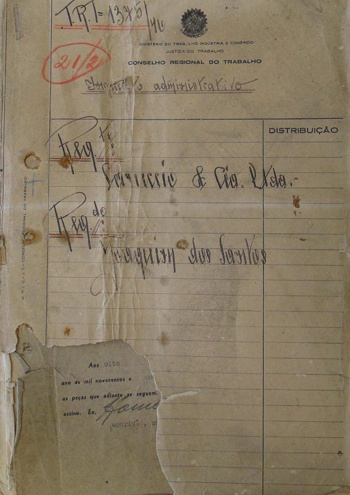 TRT=1375/46
MINISTÉRIO DO TRABALHO INDUSTRIA E COMÉRCIO
JUSTIÇA DO TRABALHO
CONSELHO REGIONAL DO TRABALHO
21/2
administrativo
DISTRIBUIÇÃO
Reqte
& Cia. Ltda.-
Reqdo
Joaquim dos Santos
Aos oito
ano de mil novecentos e
as peças que adiante se seguem
assino. Eu,